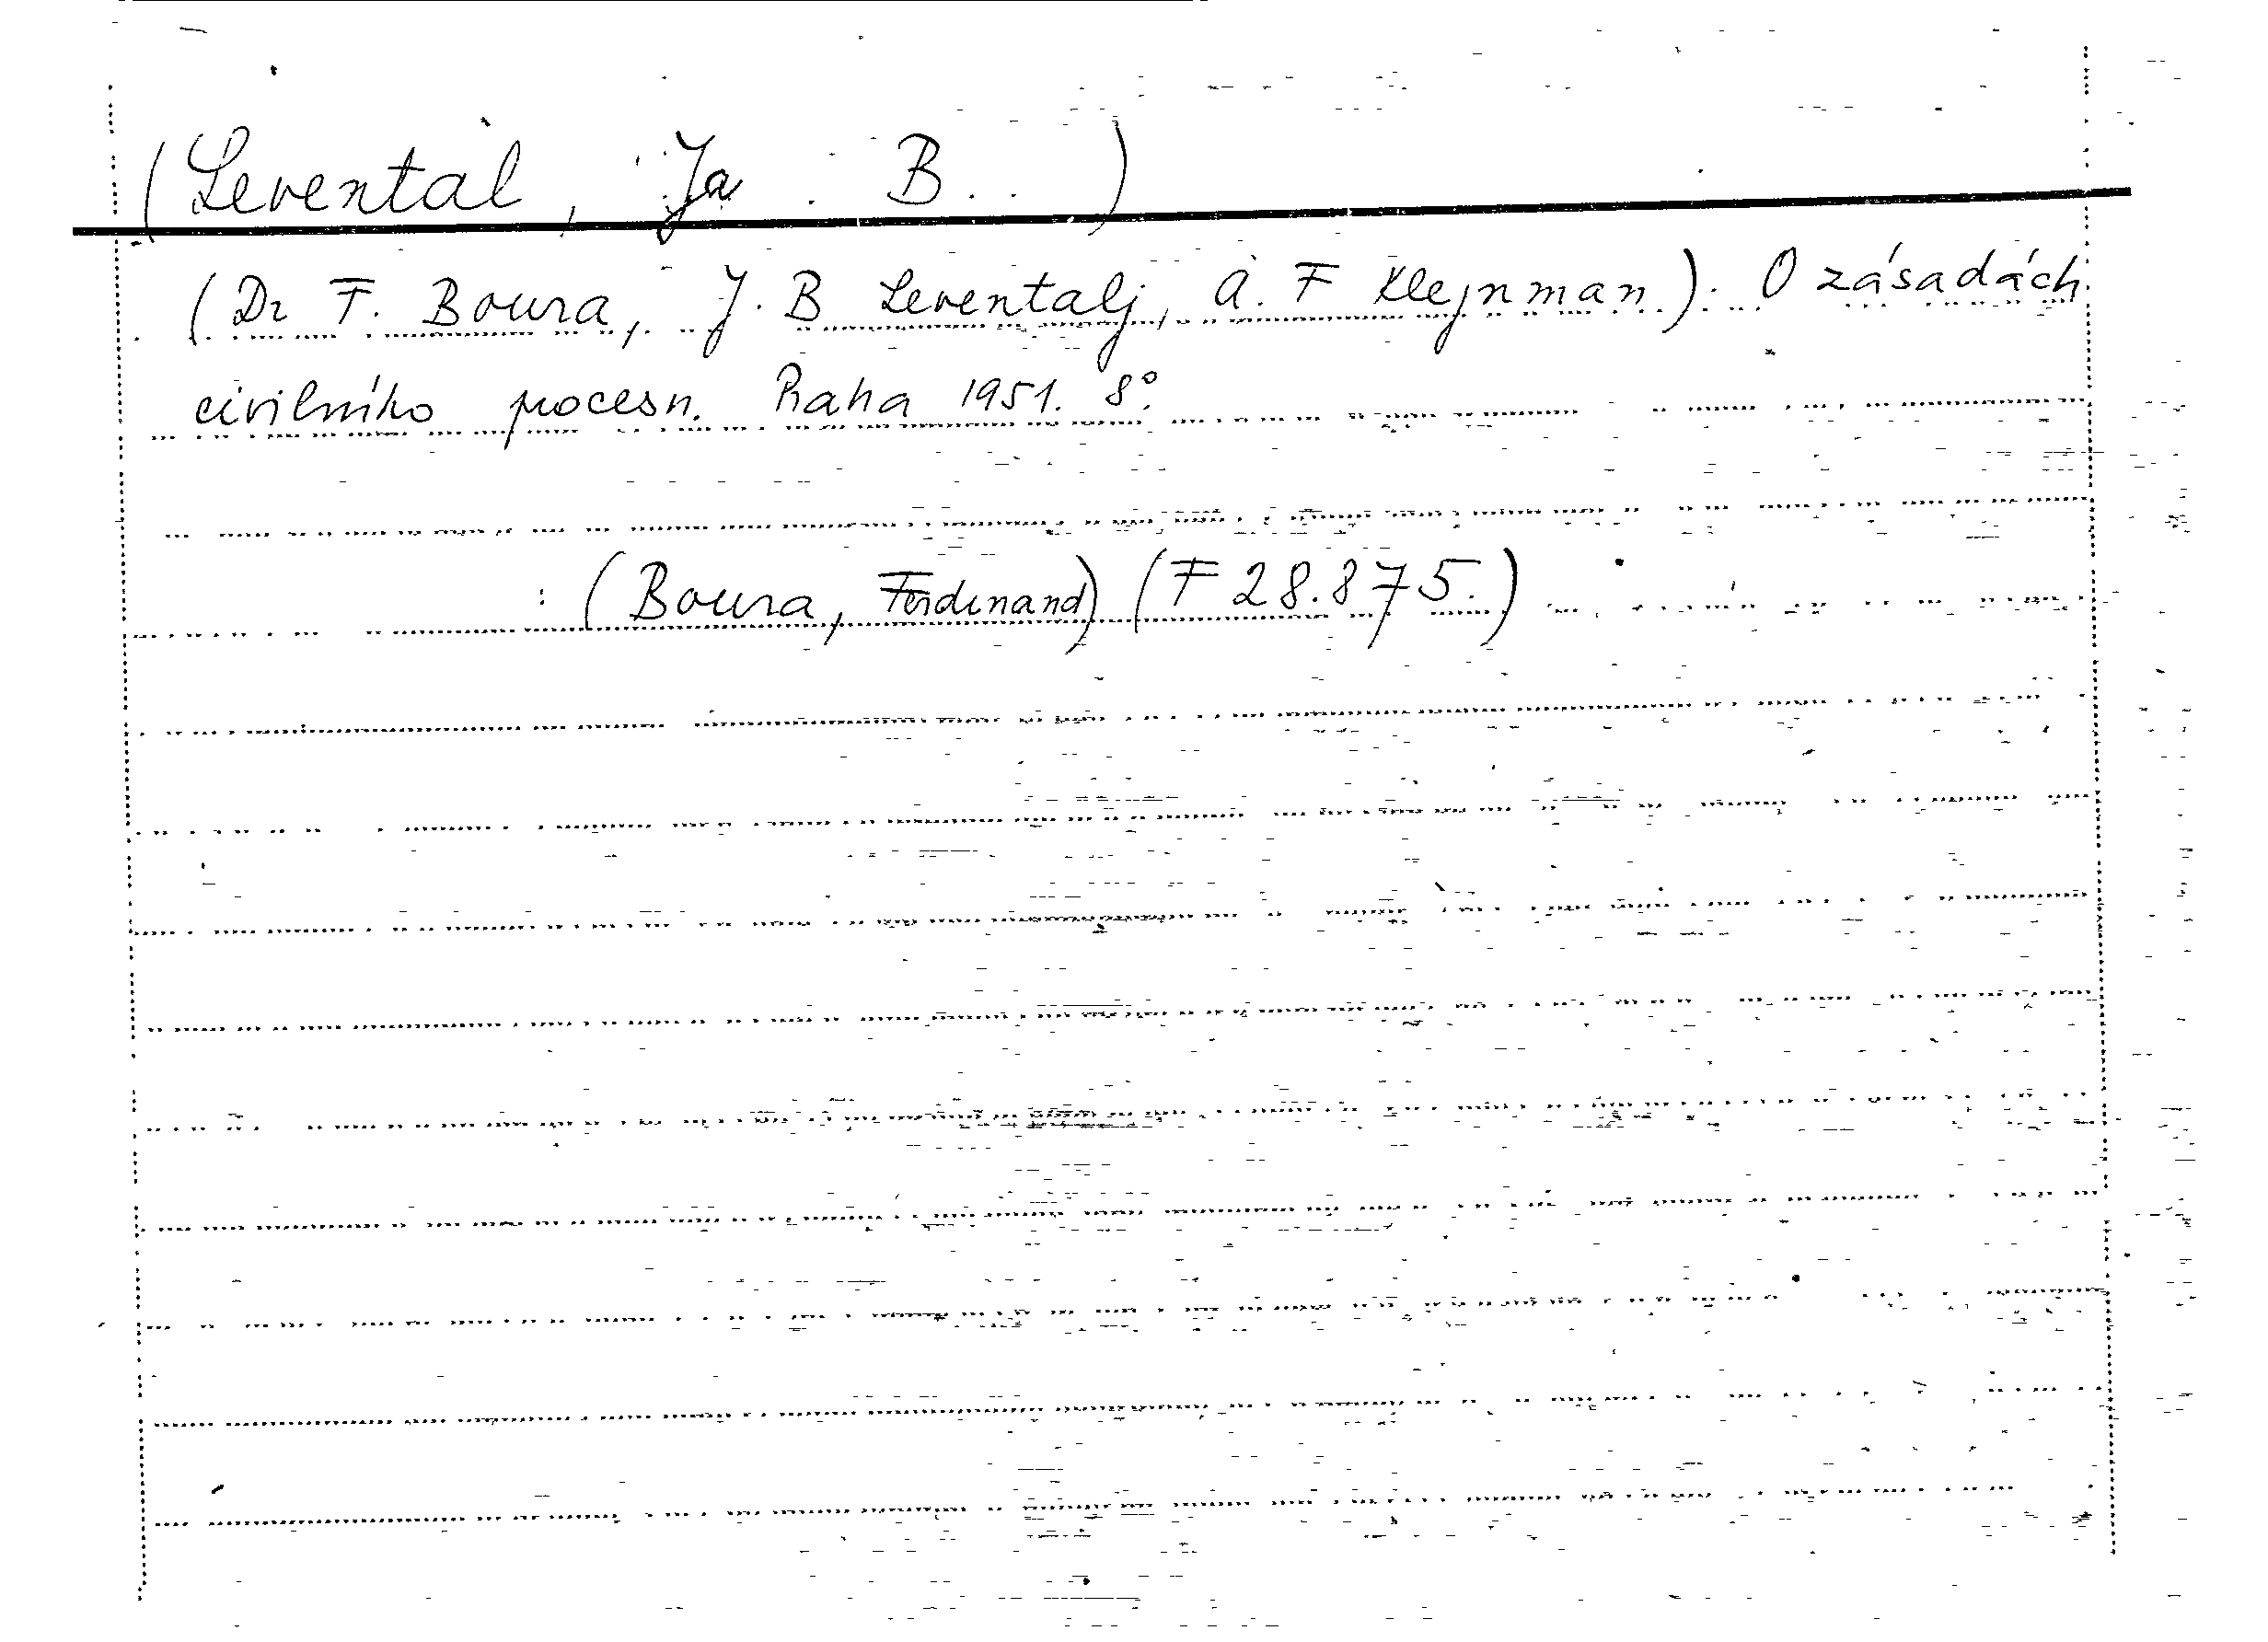 (Levental, Ja. B..)
(Dr F. Boura, J. B Leventalj, A. F Klejnman). O zásadách
civilního procesu. Praha 1951. 8°.
: (Boura, Ferdinand) (F 28.875.)